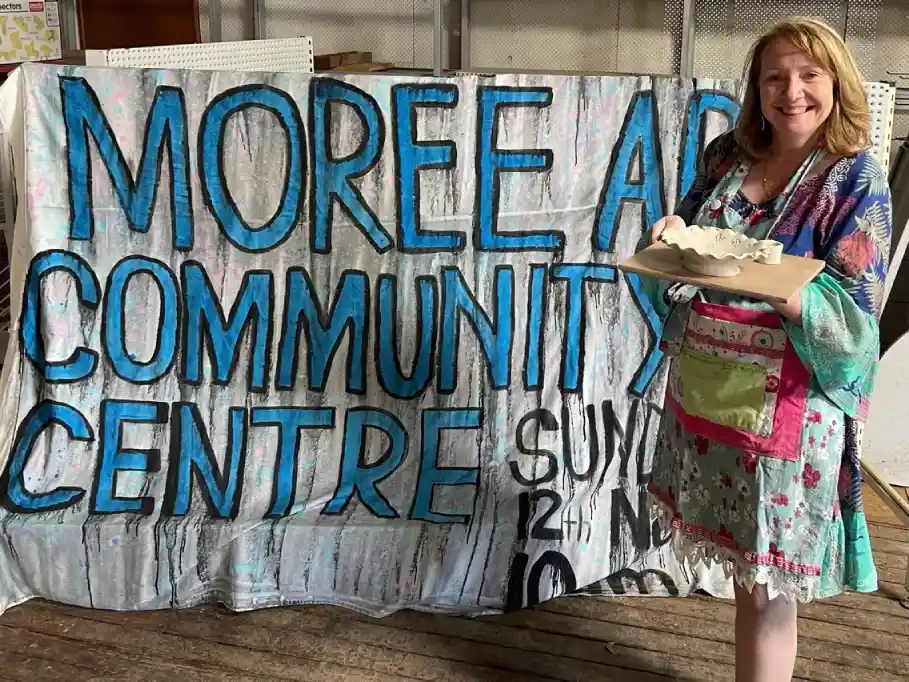 MOREE A
COMMUNITY
CENTRE
SUND
12th N
10 m